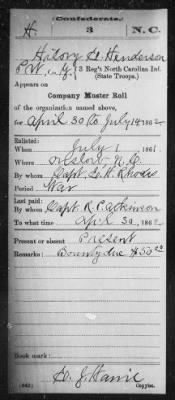 Confederate.
H 3 N.C.
Hilory G. Henderson
Pvt, Co. G, 3 Reg't North Carolina Inf.
(State Troops.)
Appears on
Company Muster Roll
of the organization named above,
for April 30 to July 14 1862
Enlisted:
When July 1 1861.
Where Onslow, N.C.
By whom Capt. Rhodes
Period War
Last paid:
By whom Capt. R. P. Atkinson
To what time Apr 30, 1862
Present or absent Present
Remarks: Bounty due $50.00
Book mark:
(642) Copyist.